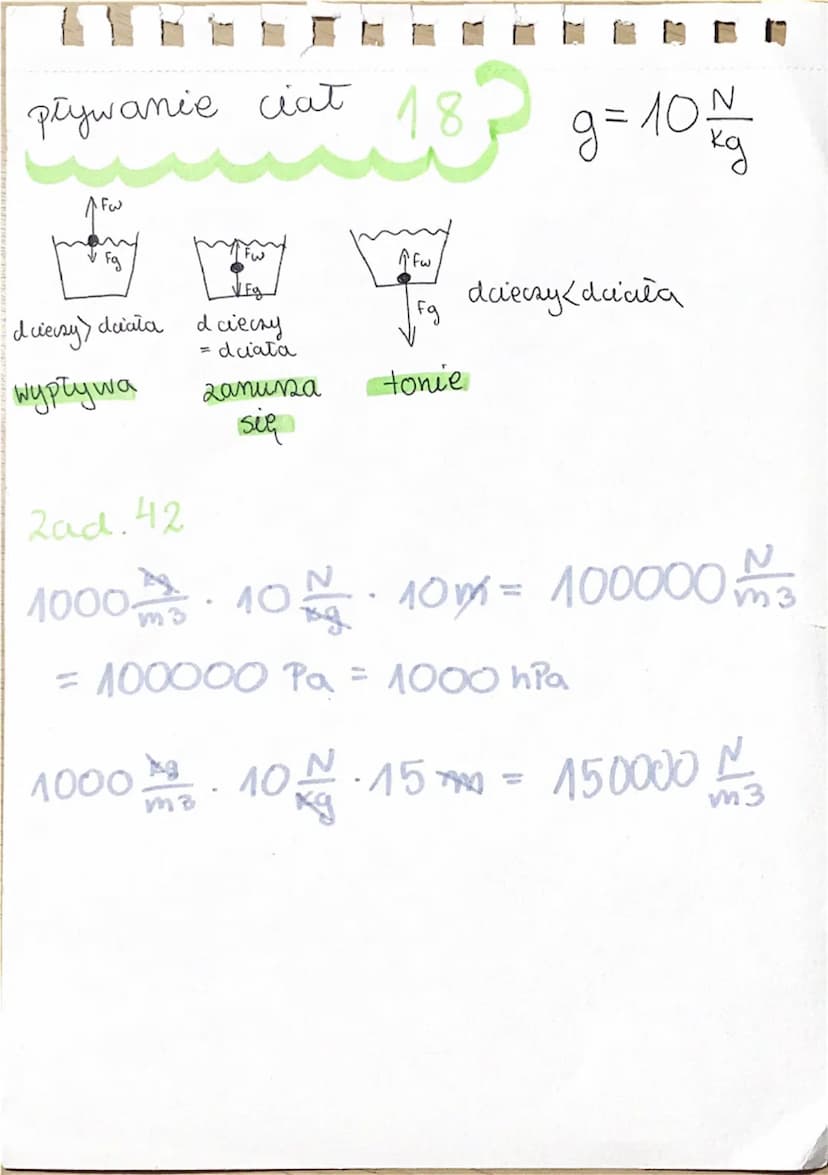 pływanie ciał 18
g = 10 N/kg
Fw
Fg
Fw
Fg
Fw
Fg
dcieczy > dciała
d cieczy
= dciała
dcieczy < dciała
wypływa
zanurza
się
tonie
Zad. 42
1000 kg/m3 · 10 N/kg · 10 m = 100000 N/m3
= 100000 Pa = 1000 hPa
1000 kg/m3 · 10 N/kg · 15 m = 150000 N/m3